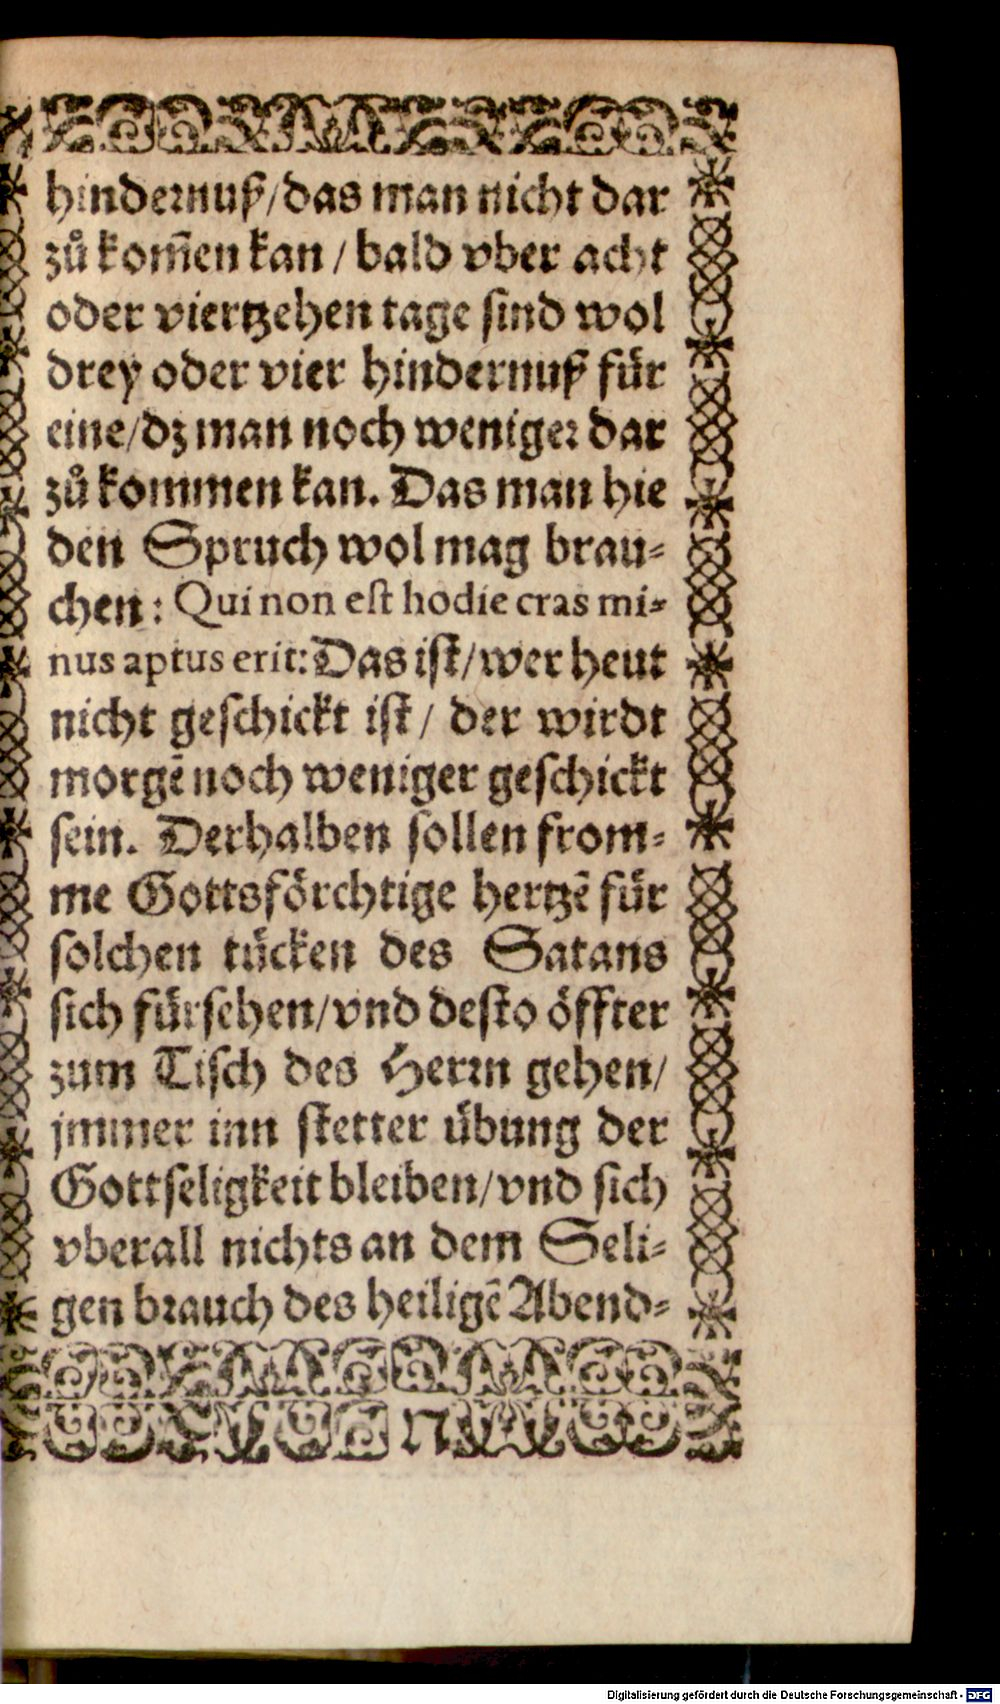 hindernuß/das man nicht dar
zů kom̃en kan / bald vber acht
oder viertzehen tage sind wol
drey oder vier hindernuß für
eine/dz man noch weniger dar
zů kommen kan. Das man hie
den Spruch wol mag brau-
chen: Qui non est hodie cras mi-
nus aptus erit: Das ist/wer heut
nicht geschickt ist/ der wirdt
morgẽ noch weniger geschickt
sein. Derhalben sollen from-
me Gottsförchtige hertzẽ für
solchen tücken des Satans
sich fürsehen/vnd desto öffter
zum Tisch des Herrn gehen/
jmmer inn stetter übung der
Gottseligkeit bleiben/vnd sich
vberall nichts an dem Seli-
gen brauch des heiligẽ Abend-
n
Digitalisierung gefördert durch die Deutsche Forschungsgemeinschaft - DFG